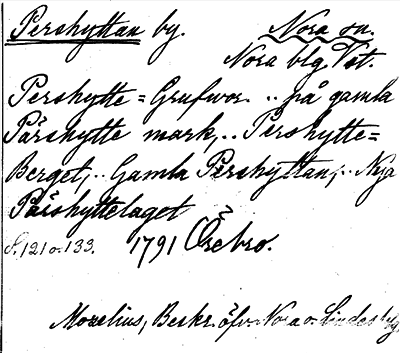 Pershyttan by. Nora sn.
Nora blg. Vst.
Pershytte=Grufvor. .. på gamla
Pärshytte mark,.. Pershytte=
Berget,.. Gamla Pershyttan,.. Nya
Pärshyttelaget
S. 121 o. 133. 1791 Örebro.
Mozelius, Beskr. öfv. Nora o. Lindesbg.